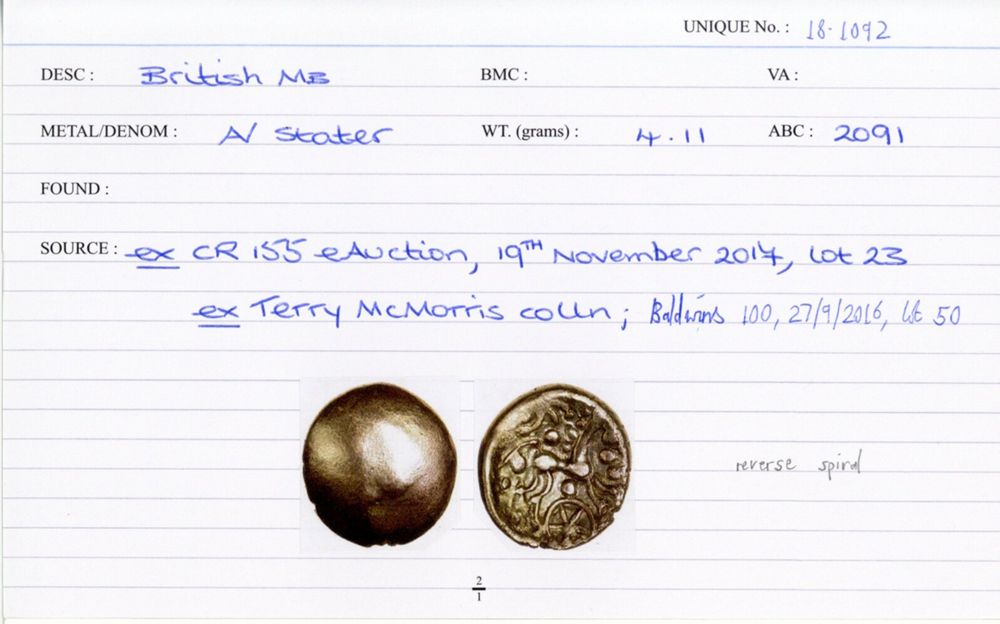 UNIQUE No. : 18-1092
DESC : British MB BMC : VA :
METAL/DENOM : A/ Stater WT. (grams) : 4.11 ABC : 2091
FOUND :
SOURCE : ex CR 155 eAuction, 19TH November 2017, lot 23
ex Terry McMorris colln ; Baldwins 100, 27/9/2016, lot 50
reverse spiral
2
1